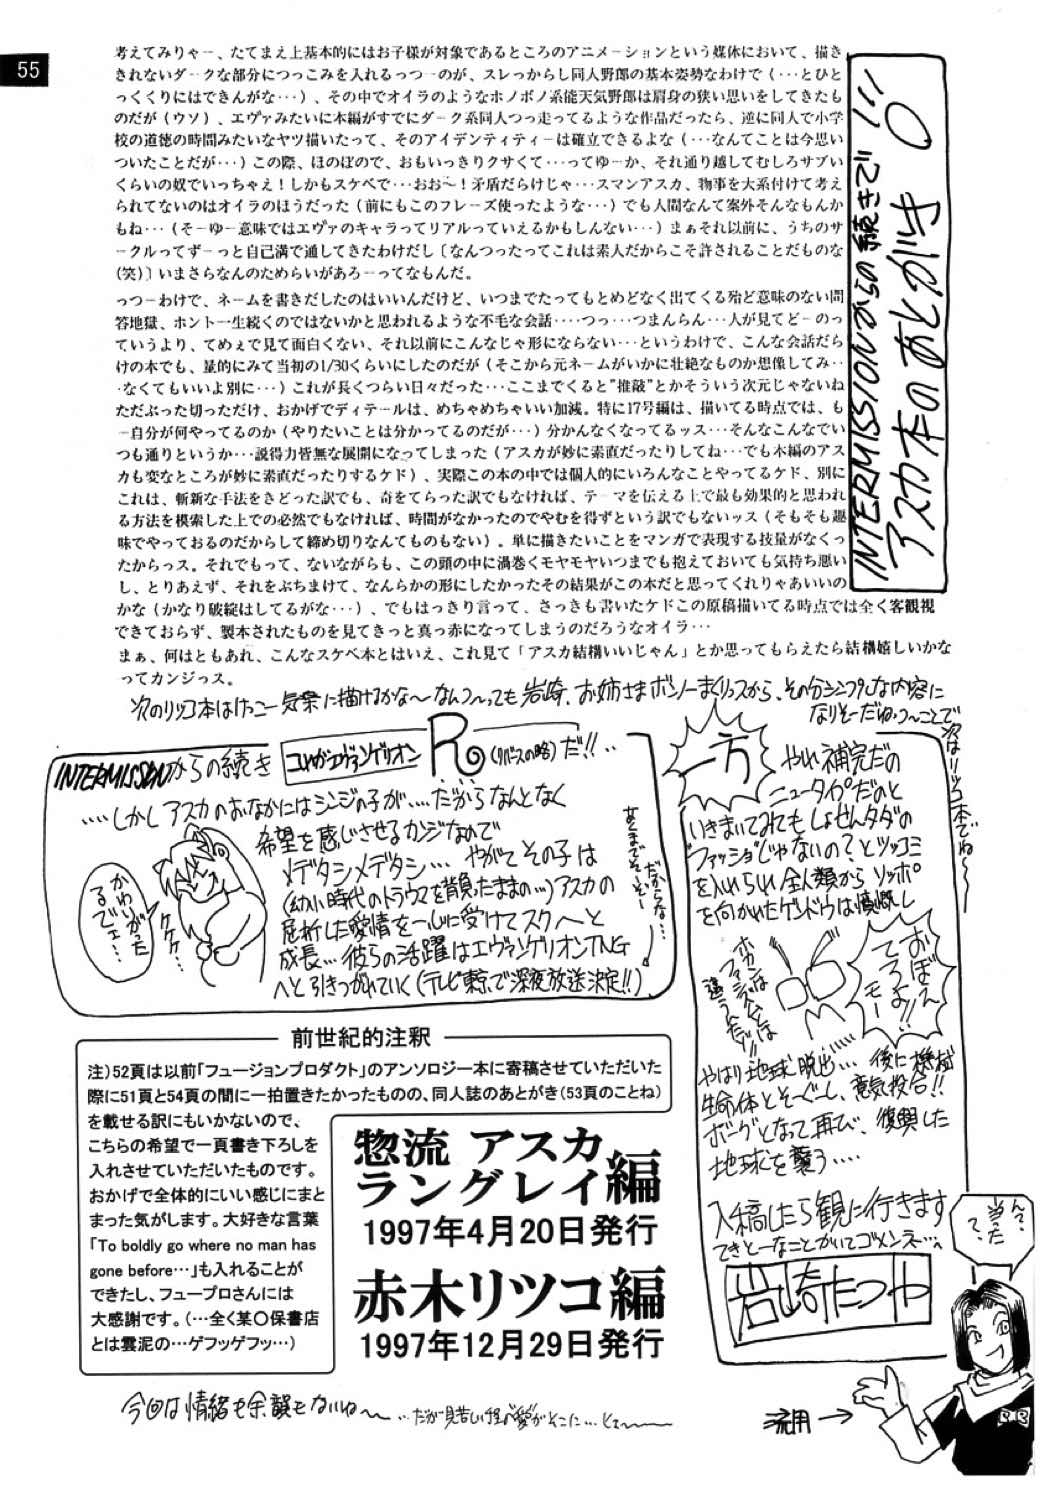 55
INTERMISSIONからの続きで!!
アスカ本のあとがき
考えてみりゃー、たてまえ上基本的にはお子様が対象であるところのアニメーションという媒体において、描き
きれないダークな部分につっこみを入れるっつーのが、スレっからし同人野郎の基本姿勢なわけで（…とひと
っくくりにはできんがな…）、その中でオイラのようなホノボノ系能天気野郎は肩身の狭い思いをしてきたも
のだが（ウソ）、エヴァみたいに本編がすでにダーク系同人つっ走ってるような作品だったら、逆に同人で小学
校の道徳の時間みたいなヤツ描いたって、そのアイデンティティーは確立できるよな（…なんてことは今思い
ついたことだが…）この際、ほのぼので、おもいっきりクサくて…ってゆーか、それ通り越してむしろサブい
くらいの奴でいっちゃえ！しかもスケベで…おお〜！矛盾だらけじゃ…スマンアスカ、物事を大系付けて考え
られてないのはオイラのほうだった（前にもこのフレーズ使ったような…）でも人間なんて案外そんなもんか
もね…（そーゆー意味ではエヴァのキャラってリアルっていえるかもしんない…）まぁそれ以前に、うちのサ
ークルってずーっと自己満で通してきたわけだし〔なんつったってこれは素人だからこそ許されることだものな
（笑）〕いまさらなんのためらいがあろーってなもんだ。
っつーわけで、ネームを書きだしたのはいいんだけど、いつまでたってもとめどなく出てくる殆ど意味のない問
答地獄、ホント一生続くのではないかと思われるような不毛な会話‥‥つっ…つまんらん…人が見てどーのっ
ていうより、てめぇで見て面白くない、それ以前にこんなじゃ形にならない…というわけで、こんな会話だら
けの本でも、量的にみて当初の1/30くらいにしたのだが（そこから元ネームがいかに壮絶なものか想像してみ‥
‥なくてもいいよ別に…）これが長くつらい日々だった…ここまでくると"推敲"とかそういう次元じゃないね
ただぶった切っただけ、おかげでディテールは、めちゃめちゃいい加減。特に17号編は、描いてる時点では、も
ー自分が何やってるのか（やりたいことは分かってるのだが…）分かんなくなってるッス…そんなこんなでい
つも通りというか…説得力皆無な展開になってしまった（アスカが妙に素直だったりしてね…でも本編のアス
カも変なところが妙に素直だったりするケド）、実際この本の中では個人的にいろんなことやってるケド、別に
これは、斬新な手法をきどった訳でも、奇をてらった訳でもなければ、テーマを伝える上で最も効果的と思われ
る方法を模索した上での必然でもなければ、時間がなかったのでやむを得ずという訳でもないッス（そもそも趣
味でやっておるのだからして締め切りなんてものもない）。単に描きたいことをマンガで表現する技量がなくっ
たからっス。それでもって、ないながらも、この頭の中に渦巻くモヤモヤいつまでも抱えておいても気持ち悪い
し、とりあえず、それをぶちまけて、なんらかの形にしたかったその結果がこの本だと思ってくれりゃあいいの
かな（かなり破綻はしてるがな…）、でもはっきり言って、さっきも書いたケドこの原稿描いてる時点では全く客観視
できておらず、製本されたものを見てきっと真っ赤になってしまうのだろうなオイラ…
まぁ、何はともあれ、こんなスケベ本とはいえ、これ見て「アスカ結構いいじゃん」とか思ってもらえたら結構嬉しいかな
ってカンジっス。
次のリツコ本はけっこー気楽に描けるかな〜なんつっても岩崎、お姉さまボンノーまくりっスから、その分シンプルな内容に
なりそーだね・つーことで
次はリツコ本でね〜
INTERMISSIONからの続き
R（リバースの略）だ!!‥
‥‥しかしアスカのおなかにはシンジの子が‥‥だからなんとなく
希望を感じさせるカンジなので
メデタシメデタシ… やがてその子は
（幼い時代のトラウマを背負ったままの…）アスカの
屈折した愛情を一心に受けてスクスクと
成長… 彼らの活躍はエヴァンゲリオンTNG
へと引きつがれていく（テレビ東京で深夜放送決定!!）
だからな…
かわいがったるでェ…
ケケケ…
一方
やれ補完だの
ニュータイプだのと
いきまいてみてもしょせんタダの
"ファッショ"じゃないの？とツッコミ
を入れられ全人類からソッポ
を向かれたゲンドウは憤慨し
おぼえてろよ!!
ホカンはファシズムとは違うんだ!!
やはり地球脱出…… 後に機械
生命体とそーぐーし、意気投合!!
ボーグとなって再び、復興した
地球を襲う‥‥
入稿したら観に行きます
てきとーなことかいてゴメンネー…
岩崎たつや
前世紀的注釈
注）52頁は以前「フュージョンプロダクト」のアンソロジー本に寄稿させていただいた
際に51頁と54頁の間に一拍置きたかったものの、同人誌のあとがき（53頁のことね）
を載せる訳にもいかないので、
こちらの希望で一頁書き下ろしを
入れさせていただいたものです。
おかげで全体的にいい感じにまと
まった気がします。大好きな言葉
「To boldly go where no man has
gone before…」も入れることが
できたし、フュープロさんには
大感謝です。（…全く某〇保書店
とは雲泥の…ゲフッゲフッ…）
惣流 アスカ
ラングレイ編
1997年4月20日発行
赤木リツコ編
1997年12月29日発行
今回は情緒も余韻もないね〜 …だが見苦しい程の"愛"がそこに…
流用→